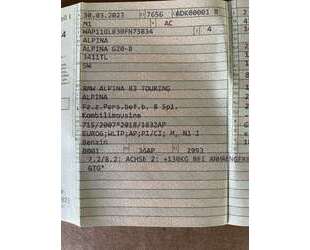 30.03.2023 7656 ADK00001 8
M1 AC
WAP11GL030FN73834 4
ALPINA
ALPINA G20-B
3411TL
SW
BMW ALPINA B3 TOURING
ALPINA
Fz.z.Pers.bef.b. 8 Spl.
Kombilimousine
715/2007*2018/1832AP
EURO6;WLTP;AP;PI/CI; M, N1 I
Benzin
0001 36AP 2993
7.2/8.2: ACHSE 2: +130KG BEI ANHÄNGERBE
GTG*